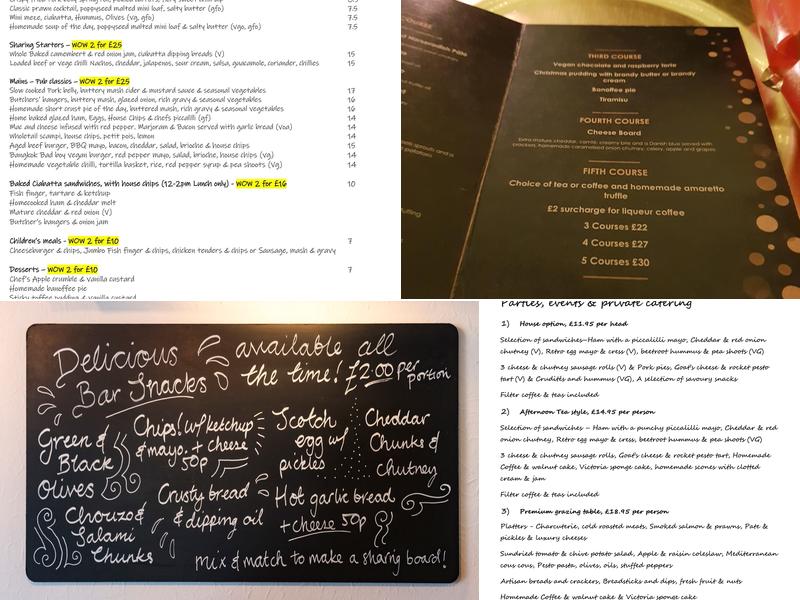 Classic prawn cocktail, poppyseed malted mini loaf, salty butter (gfo) 7.5
Mini meze, ciabatta, Hummus, Olives (vg, gfo) 7.5
Homemade soup of the day, poppyseed malted mini loaf & salty butter (vgo, gfo) 7.5
Sharing Starters – WOW 2 for £25
Whole Baked camembert & red onion jam, ciabatta dipping breads (V) 15
Loaded beef or vege chilli Nachos, cheddar, jalapenos, sour cream, salsa, guacamole, coriander, chillies 15
Mains – Pub classics – WOW 2 for £25
Slow cooked Pork belly, buttery mash cider & mustard sauce & seasonal vegetables 17
Butchers' bangers, buttery mash, glazed onion, rich gravy & seasonal vegetables 16
Homemade short crust pie of the day, buttered mash, rich gravy & seasonal vegetables 16
Home baked glazed ham, Eggs, House Chips & chefs piccalilli (gf) 14
Mac and cheese infused with red pepper, Marjoram & Bacon served with garlic bread (voa) 14
Wholetail scampi, house chips, petit pois, lemon 14
Aged beef burger, BBQ mayo, bacon, cheddar, salad, brioche & house chips 15
Bangkok Bad boy Vegan burger, red pepper mayo, salad, brioche, house chips (Vg) 14
Homemade vegetable chilli, tortilla basket, rice, red pepper syrup & pea shoots (Vg) 14
Baked Ciabatta sandwiches, with house chips (12-2pm Lunch only) – WOW 2 for £16 10
Fish finger, tartare & ketchup
Homecooked ham & cheddar melt
Mature cheddar & red onion (V)
Butcher's bangers & onion jam
Children's meals – WOW 2 for £10 7
Cheeseburger & chips, Jumbo Fish finger & chips, chicken tenders & chips or Sausage, mash & gravy
Desserts – WOW 2 for £10 7
Chef's Apple crumble & Vanilla custard
Homemade banoffee pie
Sticky toffee pudding & vanilla custard
THIRD COURSE
Vegan chocolate and raspberry torte
Christmas pudding with brandy butter or brandy
cream
Banoffee pie
Tiramisu
FOURTH COURSE
Cheese Board
Extra mature cheddar, cambi, creamy brie and a Danish blue served with
crackers, homemade caramelised onion chutney, celery, apple and grapes
FIFTH COURSE
Choice of tea or coffee and homemade amaretto
truffle
£2 surcharge for liqueur coffee
3 Courses £22
4 Courses £27
5 Courses £30
Delicious
Bar Snacks
available all
the time! £2.00 per
portion
Green &
Black
Olives
Chips! w/ ketchup
& mayo. + cheese
50p
Scotch
egg w/
pickles
Cheddar
Chunks &
Chutney
Chouzo &
Salami
Chunks
Crusty bread
& dipping oil
Hot garlic bread
+ cheese 50p
mix & match to make a sharing board!
Parties, events & private catering
1) House option, £11.95 per head
Selection of sandwiches–Ham with a piccalilli mayo, Cheddar & red onion
chutney (V), Retro egg mayo & cress (V), beetroot hummus & pea shoots (VG)
3 cheese & chutney sausage rolls (V) & Pork pies, Goat's cheese & rocket pesto
tart (V) & Crudités and hummus (VG), A selection of savoury snacks
Filter coffee & teas included
2) Afternoon Tea style, £14.95 per person
Selection of sandwiches – Ham with a punchy piccalilli mayo, Cheddar & red
onion chutney, Retro egg mayo & cress, beetroot hummus & pea shoots (VG)
3 cheese & chutney sausage rolls, Goat's cheese & rocket pesto tart, Homemade
Coffee & walnut cake, Victoria sponge cake, homemade scones with clotted
cream & jam
Filter coffee & teas included
3) Premium grazing table, £18.95 per person
Platters - Charcuterie, cold roasted meats, Smoked salmon & prawns, Pate &
pickles & luxury cheeses
Sundried tomato & chive potato salad, Apple & raisin coleslaw, Mediterranean
cous cous, Pesto pasta, olives, oils, stuffed peppers
Artisan breads and crackers, Breadsticks and dips, fresh fruit & nuts
Homemade Coffee & walnut cake & Victoria sponge cake